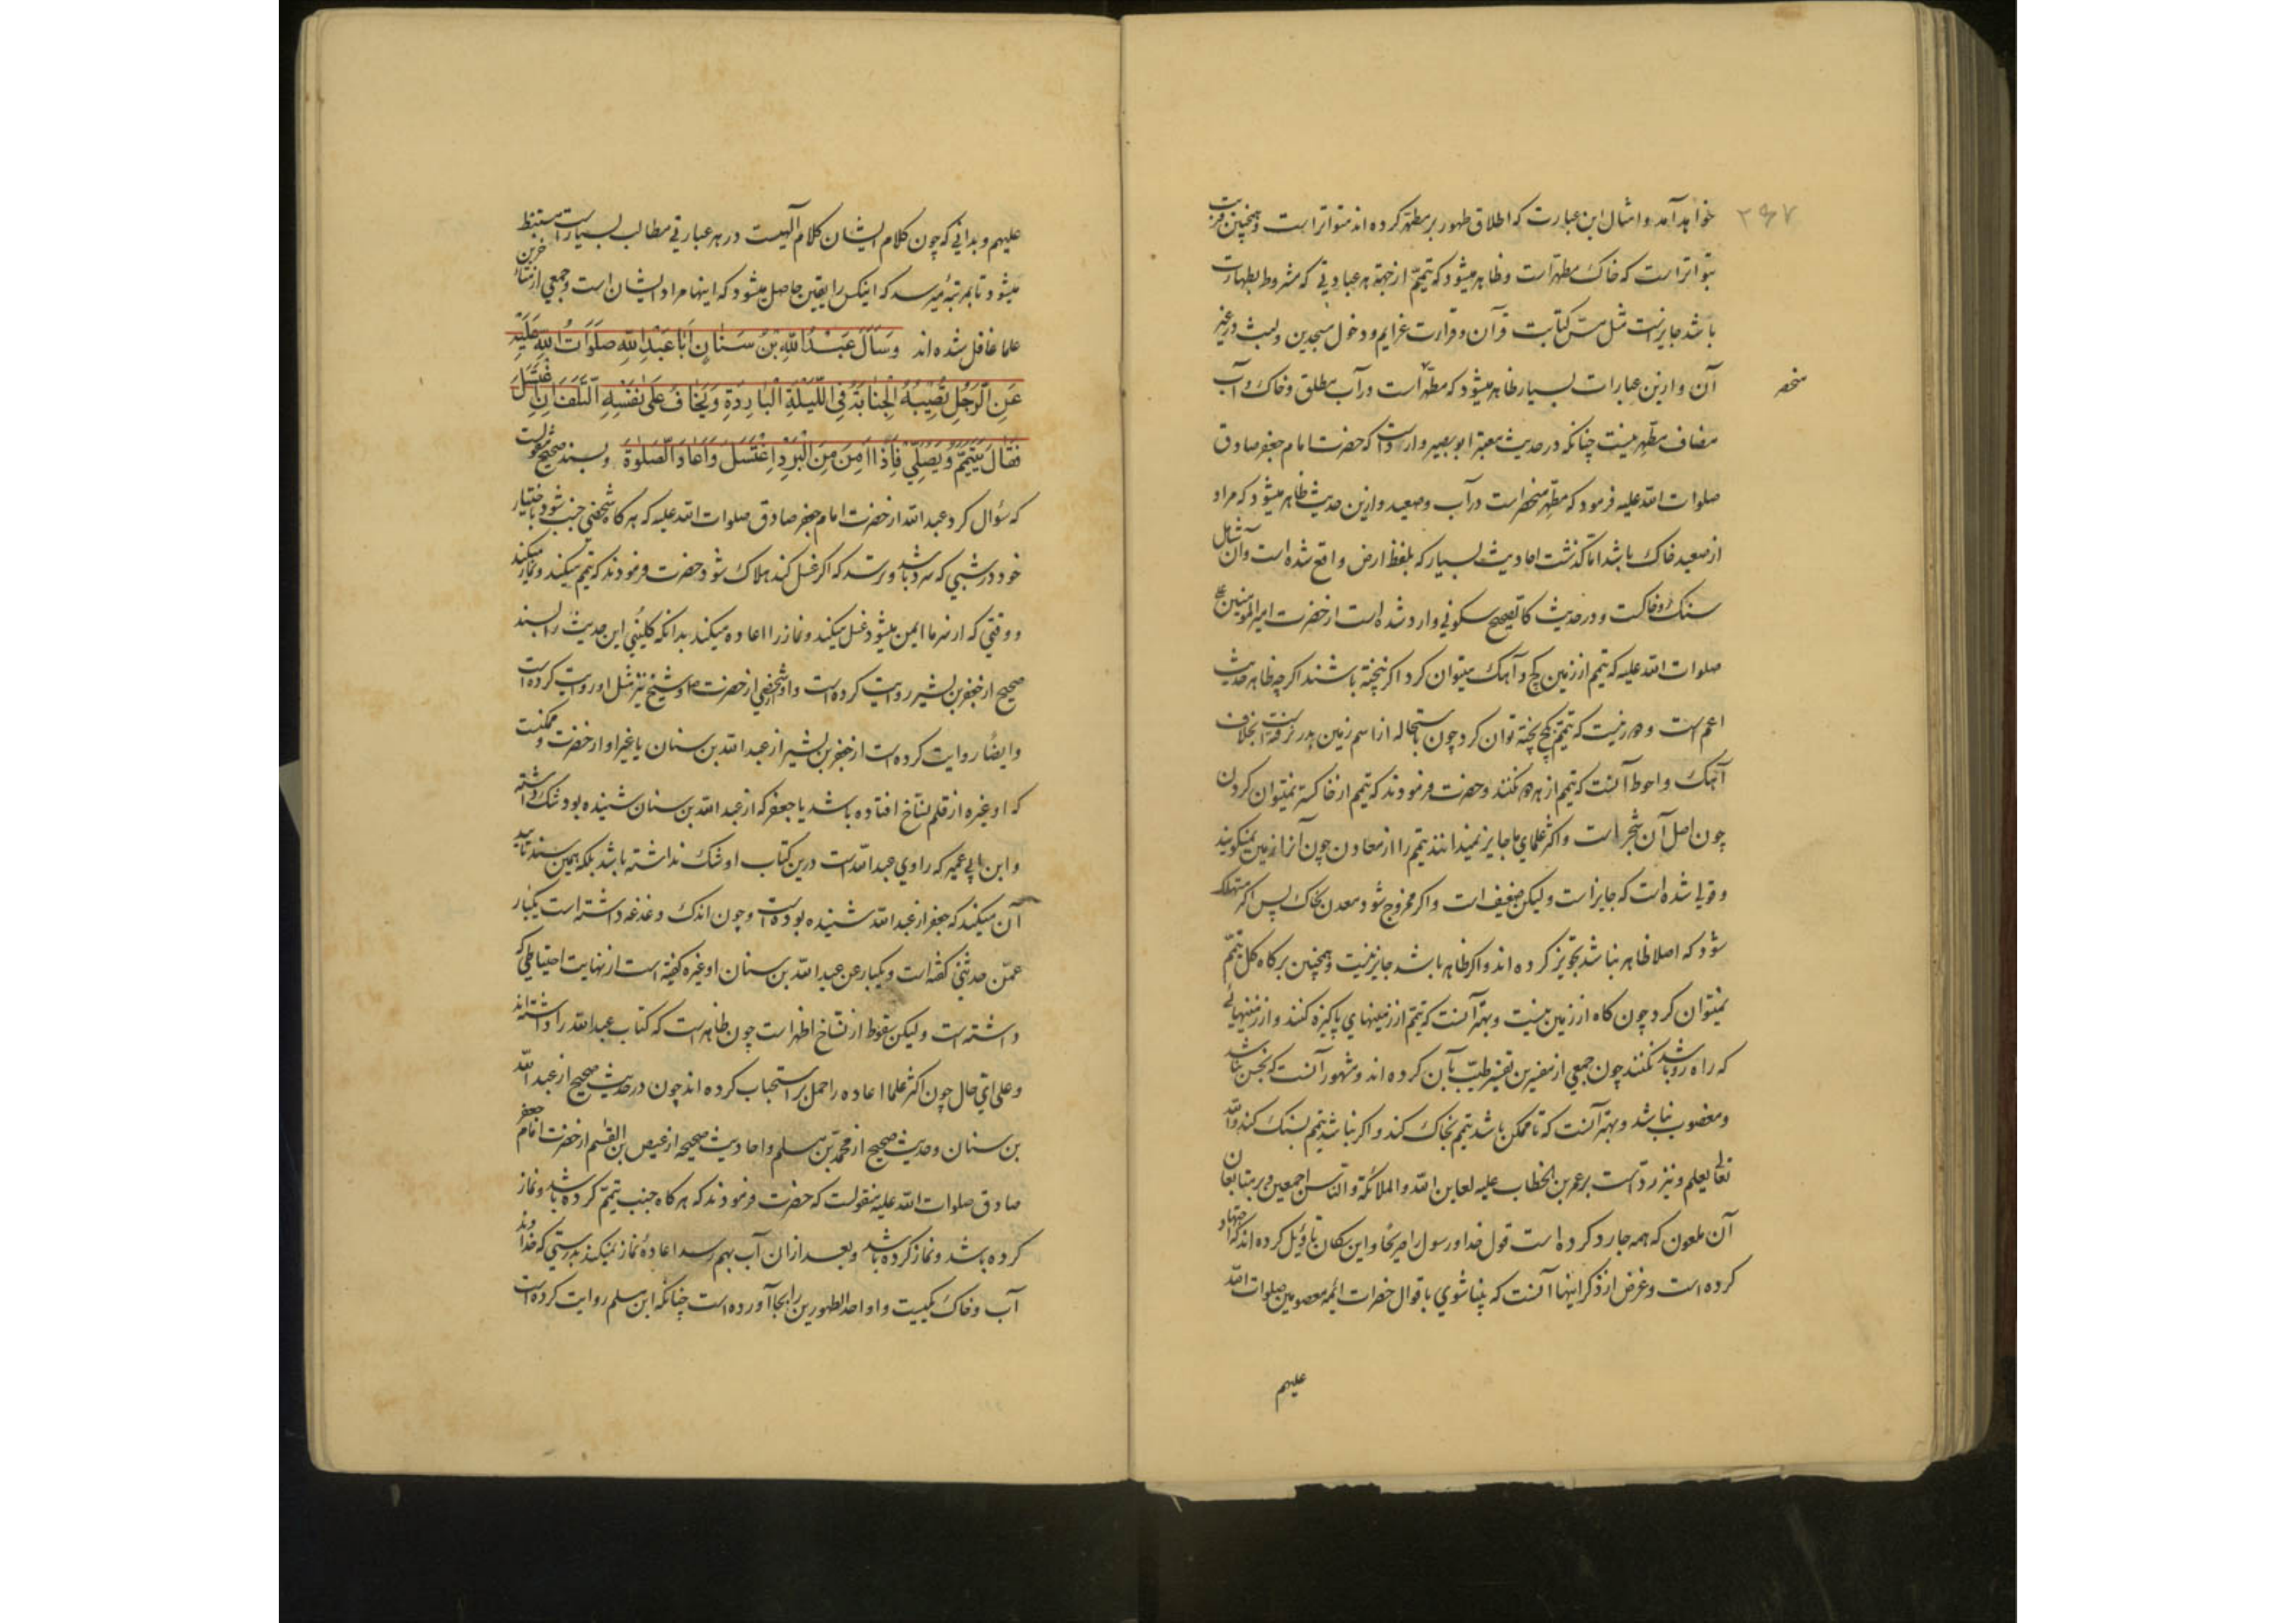 ۲۶۷
خواهد آمد و امثال این عبارت که اطلاق طهور بر مطهر کرده‌اند متواتر است و همچنین قریب
بتواتر است که خاک مطهر است و ظاهر میشود که تیمم از جهة هر عبادتی که مشروط بطهارت
باشد جایز است مثل مس کتابت قرآن و قراءت عزایم و دخول مسجدین و لبث در غیر
آن و ازین عبارات بسیار ظاهر میشود که مطهر است در آب مطلق و خاک و آب
منحصر
مضاف مطهر نیست چنانکه در حدیث معتبر ابو بصیر وارد است که حضرت امام جعفر صادق
صلوات الله علیه فرمود که مطهر منحصر است در آب و صعید و ازین حدیث ظاهر میشود که مراد
از صعید خاک باشد اما گذشت احادیث بسیار که بلفظ ارض واقع شده است و آن شامل
سنک و خاکست و در حدیث کالصحیح سکونی وارد شده است از حضرت امیرالمؤمنین
صلوات الله علیه که تیمم از زمین کچ و آهک میتوان کرد اگر نپخته باشند اگرچه ظاهر حدیث
اعم است و دور نیست که تیمم بکچ پخته توان کرد چون باستحاله از اسم زمین بدر نرفته است بخلاف
آهک و احوط آنست که تیمم از هر دو نکنند و حضرت فرمودند که تیمم از خاکستر نمیتوان کردن
چون اصل آن شجر است و اکثر علمای ما جایز نمیدانند تیمم را از معادن چون آنرا زمین نمیکویند
و قولی شده است که جایز است و لیکن ضعیف است و اگر ممزوج شود معدن بخاک پس اگر مستهلک
شود که اصلا ظاهر نباشد تجویز کرده‌اند و اگر ظاهر باشد جایز نیست و همچنین بر کاه کل تیمم
نمیتوان کرد چون کاه از زمین نیست و بهتر آنست که تیمم از زمینهای پاکیزه کنند و از زمینهائی
که راه رو باشد نکنند چون جمعی از مفسرین تفسیر طیب بآن کرده‌اند و مشهور آنست که نجس نباشد
و مغصوب نباشد و بهتر آنست که تا ممکن باشد تیمم بخاک کند و اگر نباشد تیمم بسنک کند والله
تعالی یعلم و نیز رد است بر عمر بن الخطاب علیه لعاین الله و الملائکة و الناس اجمعین و بر متابعان
آن ملعون که همه جا رد کرده است قول خدا و رسول را صریحا و این سکان تاویل کرده‌اند که اجتهاد
کرده است و غرض از ذکر اینها آنست که بینا شوی باقوال حضرات ائمه معصومین صلوات الله
علیهم
علیهم و بدانی که چون کلام ایشان کلام الهیست در هر عبارتی مطالب بسیار است مستنبط
میشود تا بمرتبهٔ میرسد که اینکس را یقین حاصل میشود که اینها مراد ایشان است و جمعی از متاخرین
علما غافل شده‌اند وَسَأَلَ عَبْدُ اللّٰهِ بْنُ سَنٰانٍ أَبٰا عَبْدِ اللّٰهِ صَلَوٰاتُ اللّٰهِ عَلَیْهِ
عَنِ الرَّجُلِ تُصِیبُهُ الْجَنٰابَةُ فِی اللَّیْلَةِ الْبٰارِدَةِ وَیَخٰافُ عَلیٰ نَفْسِهِ التَّلَفَ اِنِ اغْتَسَلَ
فَقٰالَ یَتَیَمَّمُ وَیُصَلِّی فَاِذٰا اَمِنَ مِنَ الْبَرْدِ اِغْتَسَلَ وَاَعٰادَ الصَّلٰوةَ و بسند صحیح منقولست
که سؤال کرد عبد الله از حضرت امام جعفر صادق صلوات الله علیه که هر گاه شخصی جنب شود باختیار
خود در شبی که سرد باشد و ترسد که اگر غسل کند هلاک شود حضرت فرمودند که تیمم میکند و نماز میکند
و وقتی که از سرما ایمن میشود غسل میکند و نماز را اعاده میکند بدانکه کلینی این حدیث را بسند
صحیح از جعفر بن بشیر روایت کرده است و او از شخصی از حضرت و شیخ نیز مثل او روایت کرده است
و ایضا روایت کرده است از جعفر بن بشیر از عبد الله بن سنان یا غیر او از حضرت و ممکنست
که او غیره از قلم نساخ افتاده باشد یا جعفر که از عبد الله بن سنان شنیده بود شک داشته
و ابن ابی عمیر که راوی عبد الله است درین کتاب او شک نداشته باشد بلکه همین سند تایید
آن میکند که جعفر از عبد الله شنیده بوده است و چون اندک دغدغه داشته است یکبار
عمن حدثنی گفته است و یکبار عن عبد الله بن سنان او غیره گفته است از نهایت احتیاطی که
داشته است و لیکن سقوط از نساخ اظهر است چون ظاهر است که کتاب عبد الله را داشته‌اند
و علی ای حال چون اکثر علما اعاده را حمل بر استحباب کرده‌اند چون در حدیث صحیح از عبد الله
بن سنان و حدیث صحیح از محمد بن مسلم و احادیث صحیحه از عیص بن القسم از حضرت امام جعفر
صادق صلوات الله علیه منقولست که حضرت فرمودند که هر گاه جنب تیمم کرده باشد و نماز
کرده باشد و نماز کرده باشد و بعد از آن آب بهم رسد اعادهٔ نماز نمیکند بدرستی که خداوند
آب و خاک یکیست و او احد الطهورین را بجا آورده است چنانکه ابن مسلم روایت کرده است